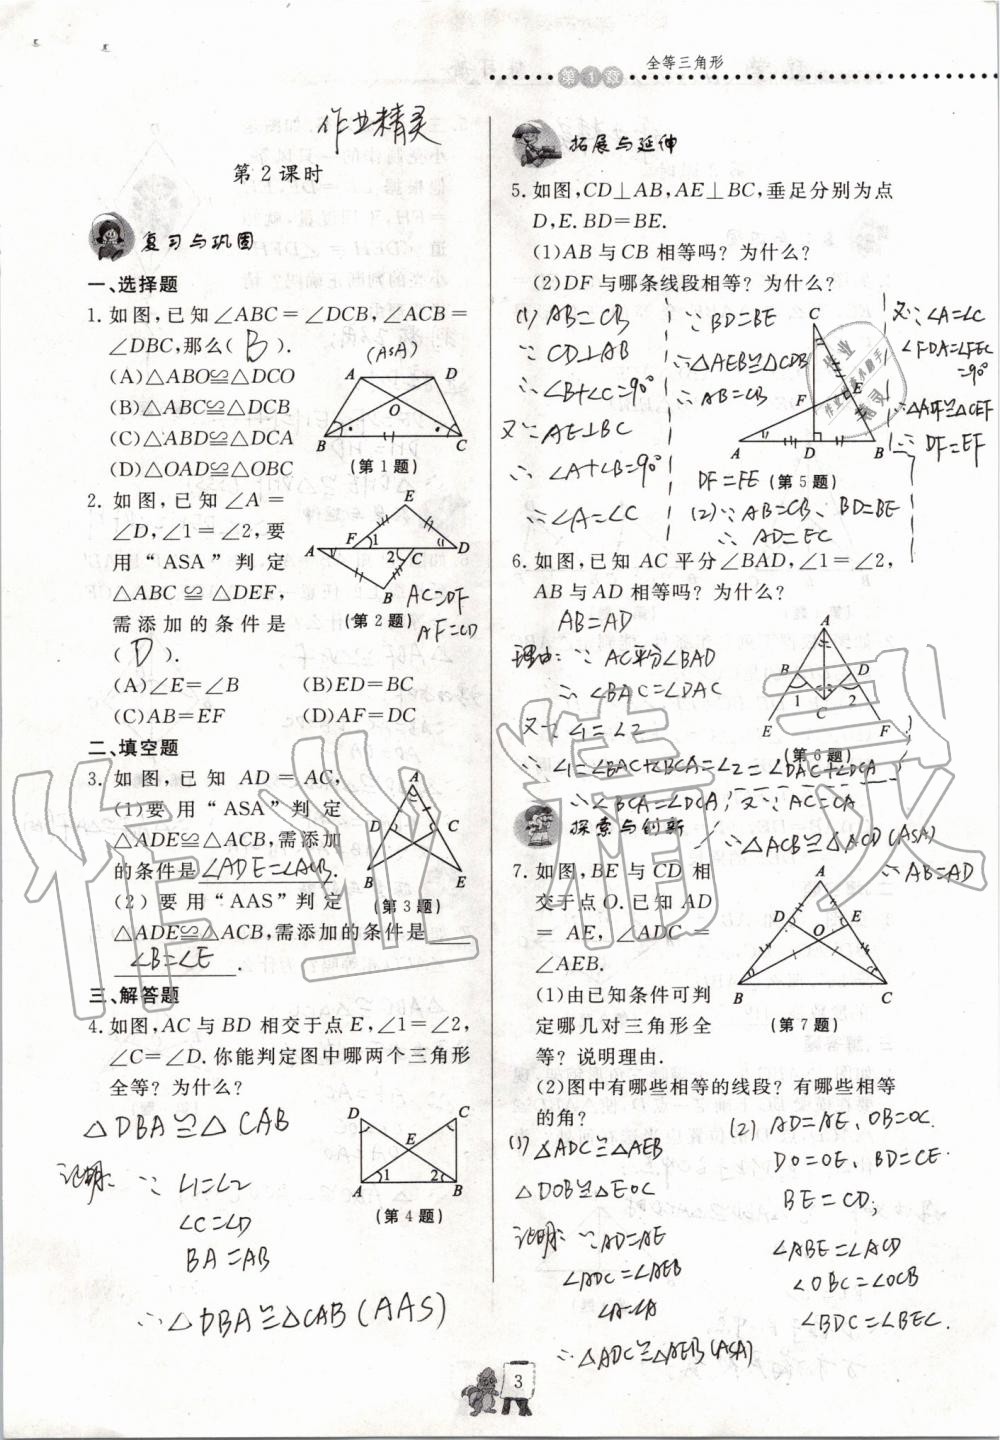 第1章
全等三角形
作业精灵
第2课时
复习与巩固
一、选择题
1. 如图,已知∠ABC=∠DCB,∠ACB=
∠DBC,那么( B ).
(ASA)
(A)△ABO≌△DCO
(B)△ABC≌△DCB
(C)△ABD≌△DCA
(D)△OAD≌△OBC
A D O B C
(第1题)
2. 如图,已知∠A=
∠D,∠1=∠2,要
用“ASA”判定
△ABC≌△DEF,
需添加的条件是
( D ).
E F 1 A 2 C D B
AC=DF
(第2题)
AF=CD
(A)∠E=∠B (B)ED=BC
(C)AB=EF (D)AF=DC
二、填空题
3. 如图,已知 AD=AC,
(1)要用“ASA”判定
△ADE≌△ACB,需添加
的条件是∠ADE=∠ACB.
(2)要用“AAS”判定
△ADE≌△ACB,需添加的条件是
∠B=∠E .
A D C B E
(第3题)
三、解答题
4. 如图,AC与BD相交于点E,∠1=∠2,
∠C=∠D.你能判定图中哪两个三角形
全等?为什么?
△DBA≌△CAB
证明: ∵ ∠1=∠2
∠C=∠D
BA=AB
∴△DBA≌△CAB(AAS)
D C E 1 2 A B
(第4题)
拓展与延伸
5. 如图,CD⊥AB,AE⊥BC,垂足分别为点
D,E.BD=BE.
(1)AB与CB相等吗?为什么?
(2)DF与哪条线段相等?为什么?
(1) AB=CB
∵ CD⊥AB
∴∠B+∠C=90°
又∵ AE⊥BC
∴∠A+∠B=90°
∴∠A=∠C
∵BD=BE
∴△AEB≌△CDB
∴AB=CB
C F E A D B
又∵∠A=∠C
∠FDA=∠FEC
=90°
∴△ADF≌△CEF
∴DF=EF
DF=FE
(第5题)
(2)∵AB=CB、BD=BE
∴AD=EC
6. 如图,已知AC平分∠BAD,∠1=∠2,
AB与AD相等吗?为什么?
AB=AD
理由:∵AC平分∠BAD
∴∠BAC=∠DAC
又∵∠1=∠2
∴∠1=∠BAC+∠BCA=∠2=∠DAC+∠DCA
∴∠BCA=∠DCA 又∵AC=CA
∴△ACB≌△ACD(ASA)
∴AB=AD
A B D 1 C 2 E F
(第6题)
探索与创新
7. 如图,BE与CD相
交于点O.已知AD
=AE,∠ADC=
∠AEB.
(1)由已知条件可判
定哪几对三角形全
等?说明理由.
(2)图中有哪些相等的线段?有哪些相等
的角?
A D E O B C
(第7题)
(1) △ADC≌△AEB
△DOB≌△EOC
证明:∵AD=AE
∠ADC=∠AEB
∠A=∠A
∴△ADC≌△AEB(ASA)
(2) AD=AE、OB=OC.
DO=OE、BD=CE.
BE=CD;
∠ABE=∠ACD
∠OBC=∠OCB
∠BDC=∠BEC.
3
作业精灵